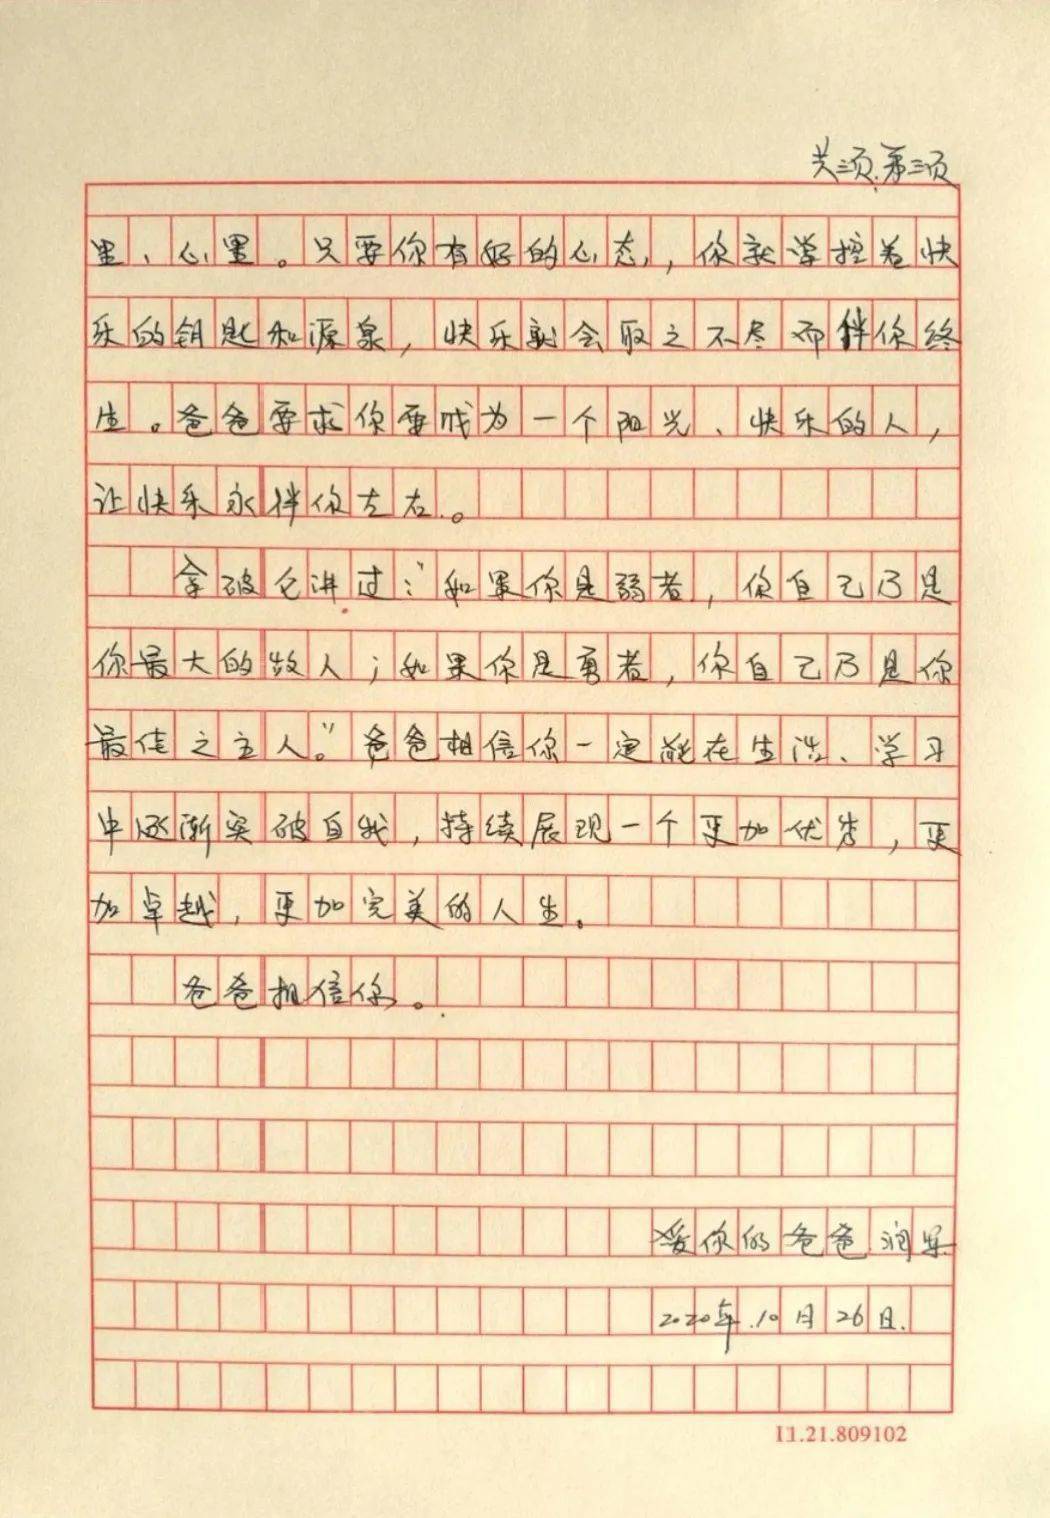 共三页.第三页
里、心里。只要你有好的心态,你就掌控着快
乐的钥匙和源泉,快乐就会取之不尽而伴你终
生。爸爸要求你要成为一个阳光、快乐的人,
让快乐永伴你左右。
拿破仑讲过:“如果你是弱者,你自己乃是
你最大的敌人;如果你是勇者,你自己乃是你
最佳之主人。”爸爸相信你一定能在生活、学习
中逐渐突破自我,持续展现一个更加优秀,更
加卓越,更加完美的人生。
爸爸相信你。
爱你的爸爸:润
2020年.10月26日.
11.21.809102